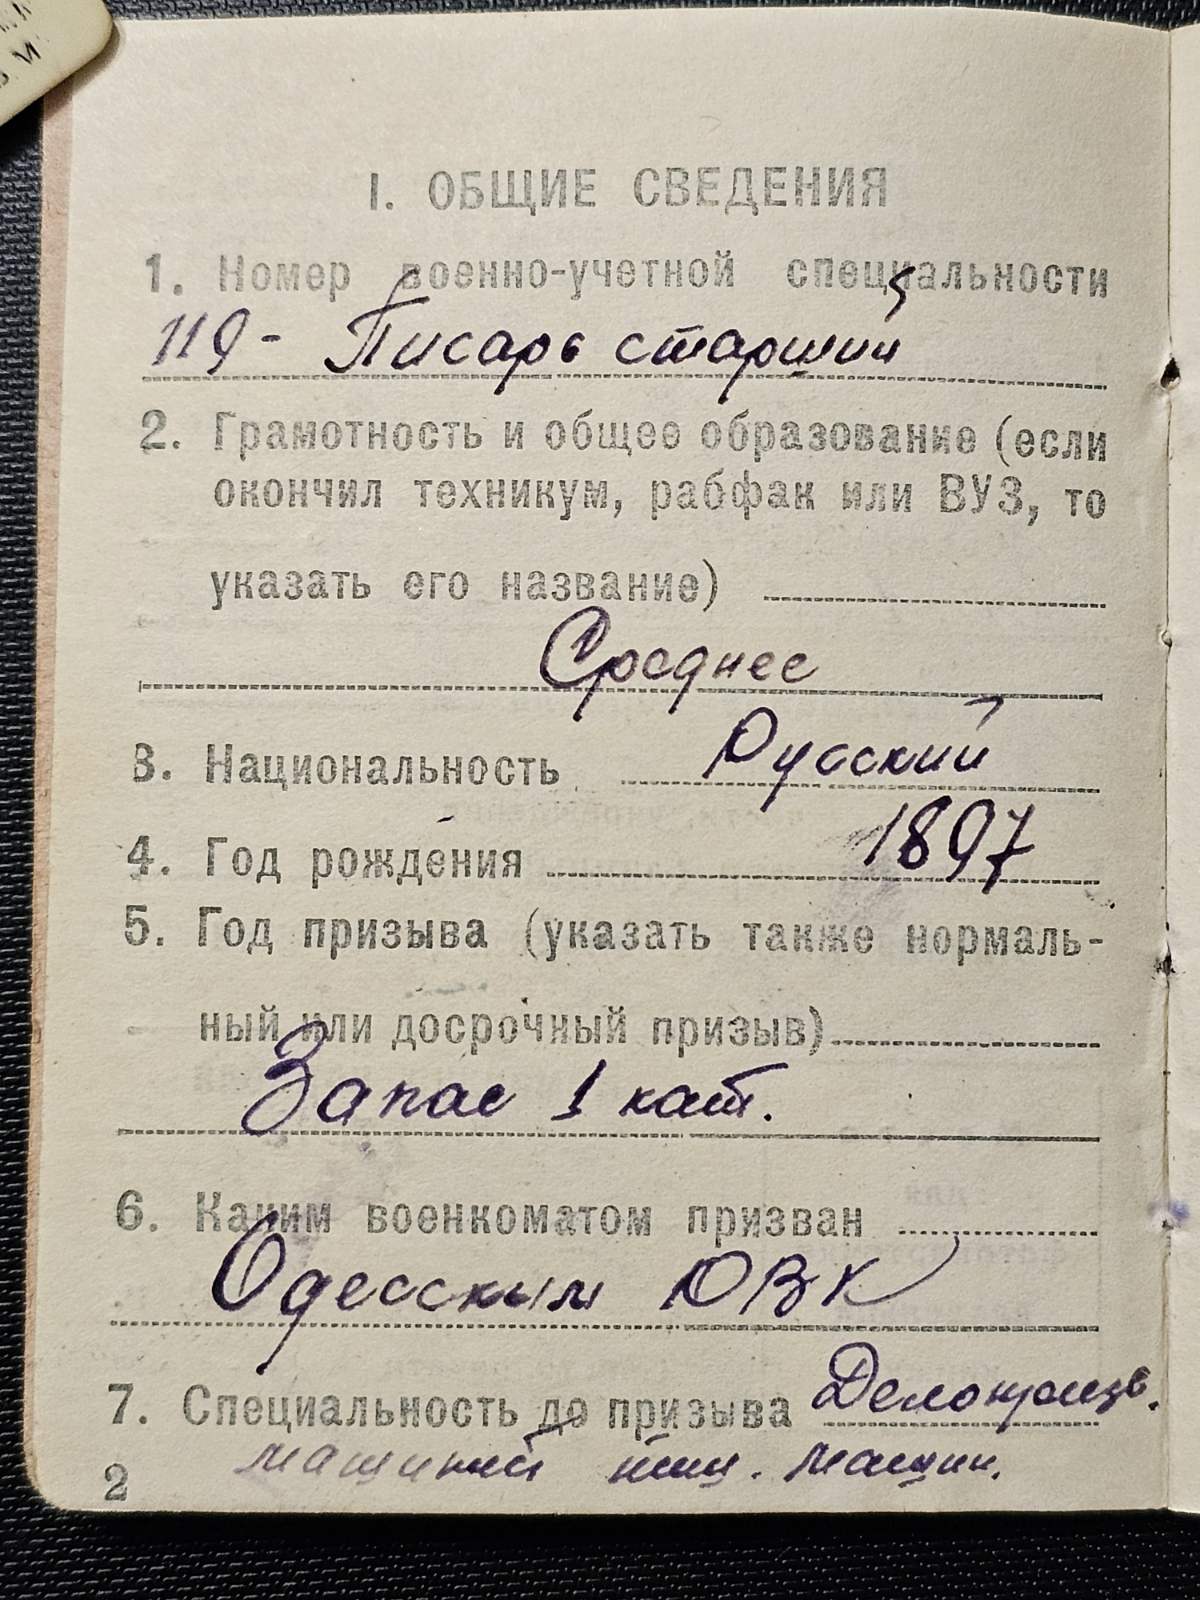 I. ОБЩИЕ СВЕДЕНИЯ
1. Номер военно-учетной специальности
119 - Писарь старший
2. Грамотность и общее образование (если
окончил техникум, рабфак или ВУЗ, то
указать его название)
Среднее
3. Национальность Русский
4. Год рождения 1897
5. Год призыва (указать также нормаль-
ный или досрочный призыв)
Запас 1 кат.
6. Каким военкоматом призван
Одесским ОВК
7. Специальность до призыва Делопроизв.
машин.
2